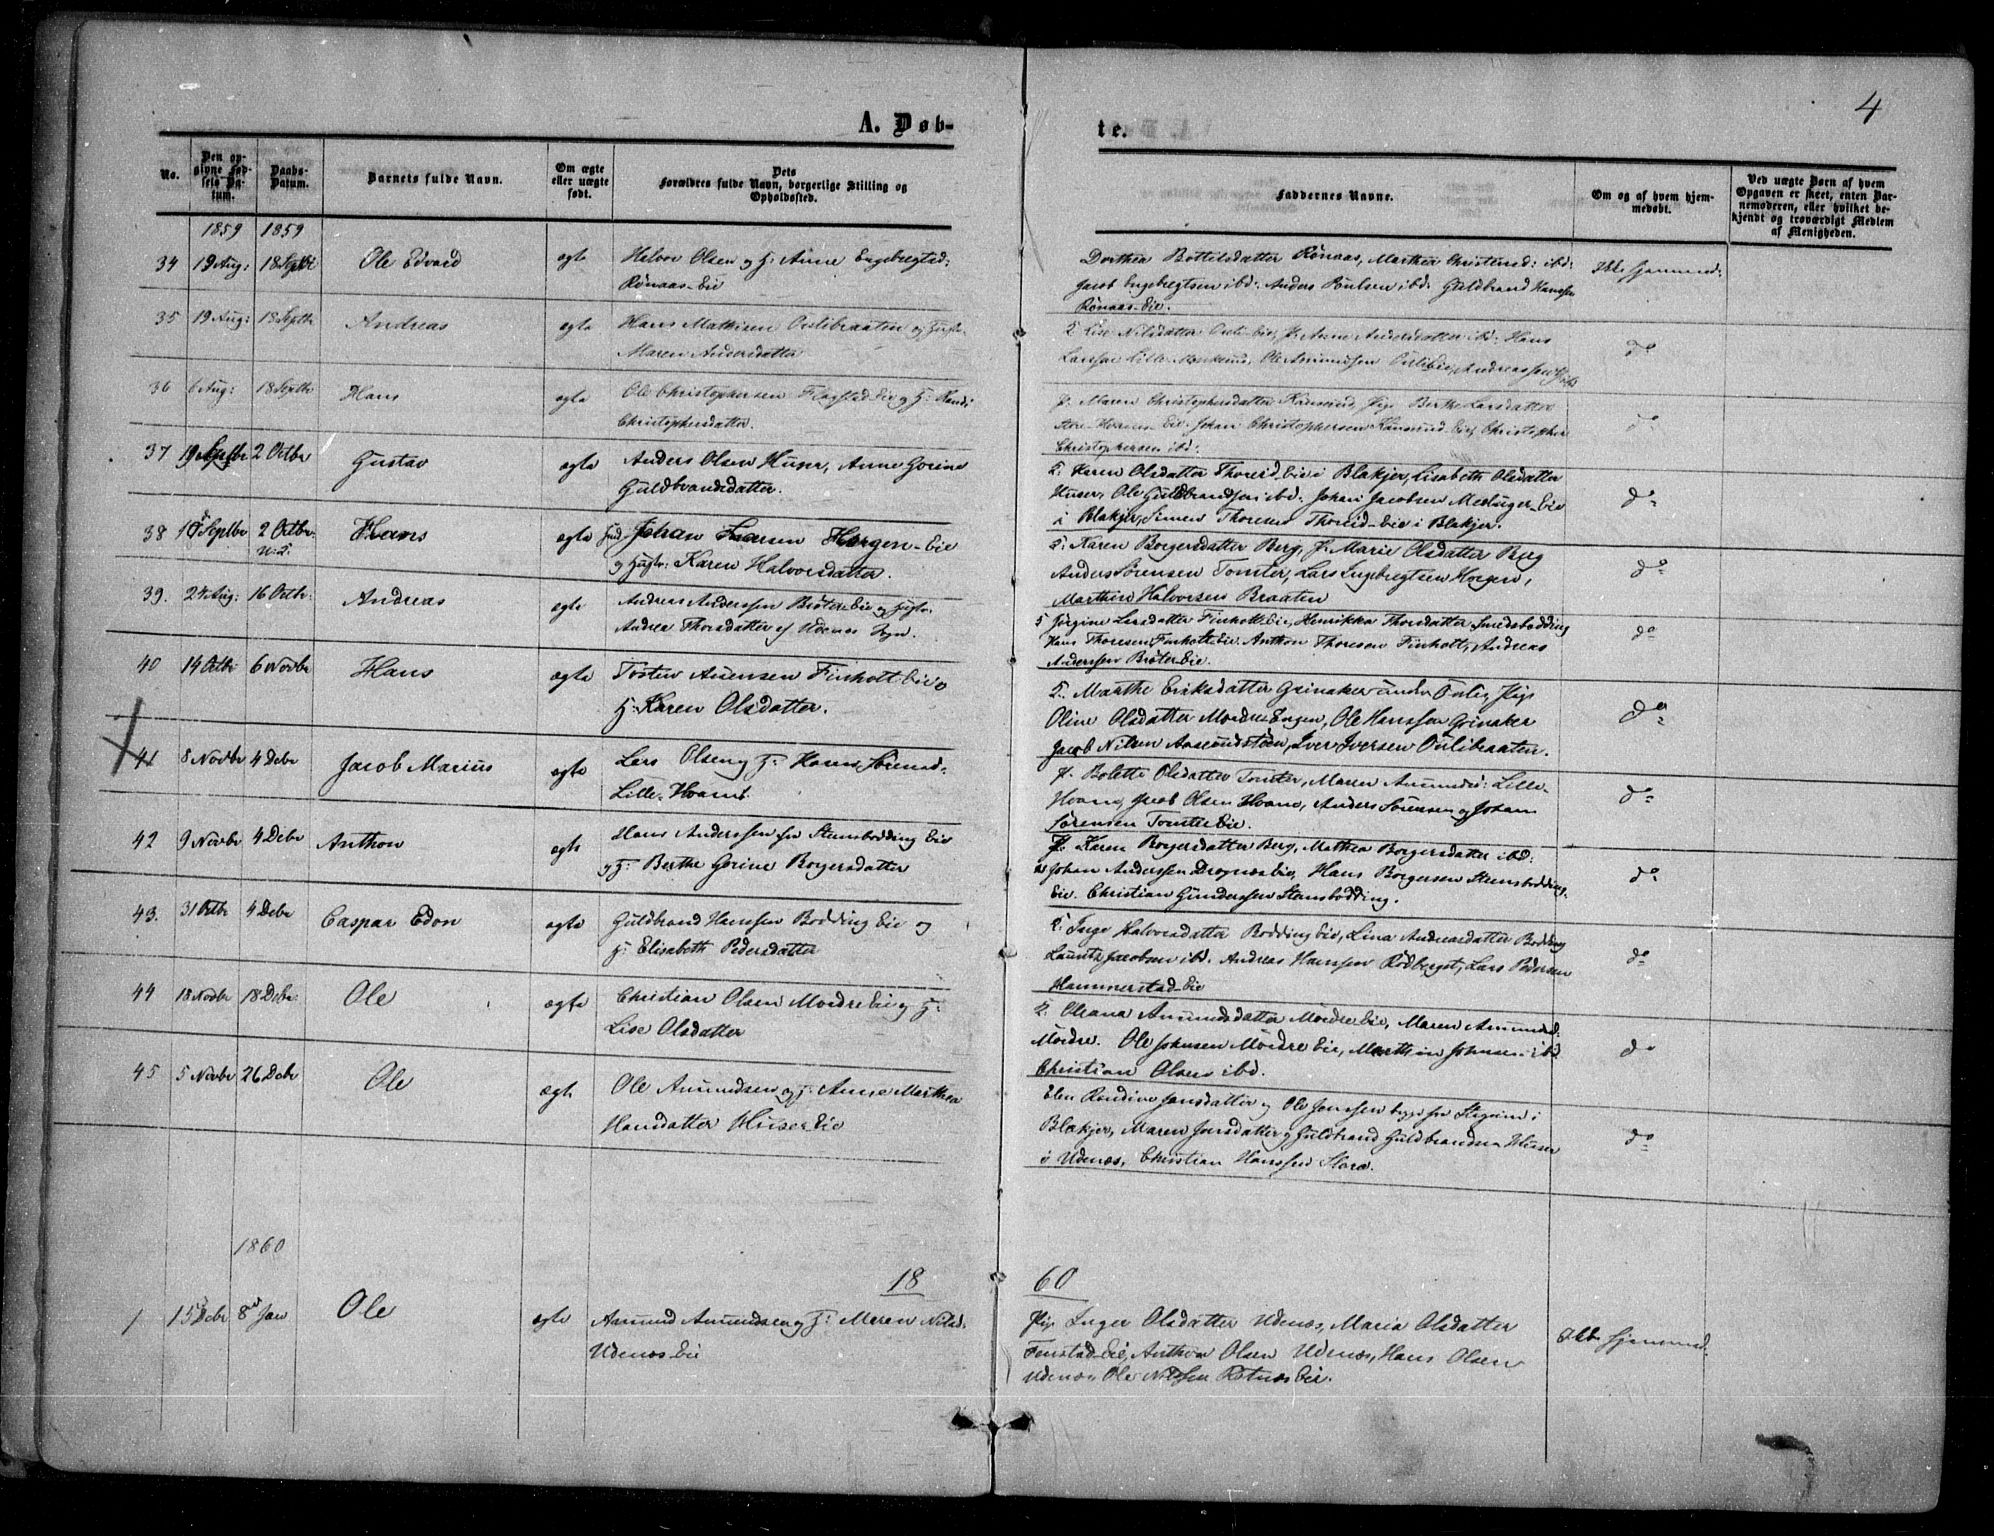 4
A. Døb-
te.
No.
Den op-
givne Fød-
sels Da-
tum.
Daabs-
Datum.
Barnets fulde Navn.
Om ægte
eller uægte
født.
Dets
Forældres fulde Navn, borgerlige Stilling og
Opholdssted.
Faddernes Navne.
Om og af hvem hjem-
medøbt.
Ved uægte Børn af hvem
Opgaven er skeet, enten Bar-
nemoderen, eller hvilket be-
kjendt og troværdigt Medlem
af Menigheden.
1859 1859
34 19 Aug: 18 Septbr Ole Edvard ægte Helvor Olsen og H: Anne Engebregtsd:
Rønaas-Eie
Dorthea Bottilsdatter Rønaas, Marthea Christensd: ibd:
Jacob Engebregtsen ibd: Anders Poulsen ibd: Guldbrand Hanssen
Rønaas-Eie.
Ikke hjemmed:
35 19 Aug: 18 Septbr Andreas ægte Hans Mathisen Ovlibraaten og Hustr:
Maren Andersdatter
Lise Nilsdatter Ovli-Eie, P. Anne Andersdatter ibd: Hans
Larssen Lille- Ole Amundsen Ovlieie, Andreas
do
36 6 Aug: 18 Septbr Hans ægte Ole Christophersen Flagstad-Eie og H: Randi
Christophersdatter.
P. Maren Christophersdatter Kansrud, Pige Berthe Larsdatter
Store-Hvams-Eie. Johan Christophersen Kansrud-Eie, Christopher
Christophersen ibd:
do
37 19 Septbr 2 Octbr Gustav ægte Anders Olsen Huser, Anne Gorine
Guldbrandsdatter.
Karen Olsdatter Thoresd-Eie i Blakjer, Lisabeth Olsdatter
Huser, Ole Guldbrandsen ibd: Johan Jacobsen Melnger-Eie
i Blakjer, Simen Thoresen Thoresd-Eie i Blakjer.
do
38 10 Septbr 2 Octbr Hans ægte Johan Larsen Horgen-Eie
og Hustr: Karen Halvorsdatter.
Karen Borgersdatter Berg, P. Marie Olsdatter Berg
Anders Sørensen Tomter, Lars Ingebregtsen Horgen,
Marthin Halvorsen Braaten
do
39. 24 Aug: 16 Octbr: Andreas ægte Andreas Anderssen Brøter-Eie og Hustr:
Andrea Thorsdatter af Udenæs Sogn.
Jørgine Larsdatter Finholt-Eie, Henrikka Thorsdatter Smedsbodding
Hans Thoresen Finholt-Eie. Anthon Thoresen Finholt, Andreas
Anderssen Brøter-Eie.
do
40 14 Octbr 6 Novbr Hans ægte Tosten Auensen Finholt-Eie og
H: Karen Olsdatter.
Marthe Eriksdatter Grinaker under Ovli, Pige
Oline Olsdatter Mordre-Engen, Ole Hanssen Grinaker
Jacob Nilsen Aaserudstøen, Iver Iversen Ovlibraaten.
do
41 8 Novbr 4 Debr Jacob Marius ægte Lars Olsen og H: Hanne Sørensd:
Lille-Hvams.
P. Bolette Olsdatter Tomter, Maren Amundsd: Lille-
Hvam, Jacob Olsen Hvam, Anders Sørensen og Johan
Sørensen Tomter-Eie.
do
42 9 Novbr 4 Debr Anthon ægte Hans Anderssen fra Stensbodding Eie
og H: Berthe Gorine Borgersdatter
P. Karen Borgersdatter Berg, Mathea Borgersdatter ibd:
Johan Anderssen Drognæs-Eie, Hans Borgersen Stensbodding-
Eie. Christian Gunderssen Stensbodding.
do
43. 31 Octbr 4 Debr Caspar Edon ægte Guldbrand Hanssen Bodding Eie og
H: Elisabeth Pedersdatter
Inge Halvorsdatter Bodding Eie, Lina Andreasdatter Bodding
Lauritz Jacobsen ibd. Andreas Hanssen Rødberget, Lars Pedersen
Hammerstad-Eie
do
44 18 Novbr 18 Debr: Ole ægte Christian Olsen Mordre Eie og H:
Lise Olsdatter
Oleana Amundsdatter Mordre Eie, Maren Amundsd:
Mordre. Ole Johnsen Mordre Eie, Marthin Johnsen ibd
Christian Olsen ibd.
do
45 5 Novbr 26 Debr Ole ægte Ole Amundsen og H: Anne Marthea
Hansdatter Huser Eie
Elen Randine Jansdatter og Ole Janssen begge fra i
Blakjer, Maren Jansdatter og Guldbrand Guldbrandsen Huser
i Udenæs, Christian Hanssen
do
1860
18 60
1 15 Debr 8 Jan Ole ægte Amund Amundsen og H: Maren Nilsd.
Udenæs-Eie
Pig. Inger Olsdatter Udenæs, Maria Olsdatter
Fenstad-Eie, Anthon Olsen Udenæs, Hans Olsen
Udenæs Ole Nilsen Eie.
Ikke hjemmed.